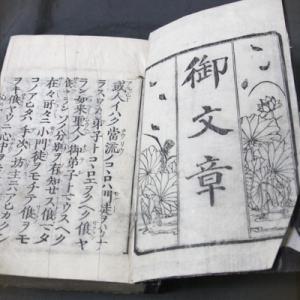 御文章
或人イハク當流ノコヽロハ門徒ヲハカナ
ラスワカ弟子トコヽロエヲクヘク候ヤ
ラン如來聖人ノ御弟子トマウスヘク
候ヤランソノ分別ヲ存知セス候マタ
在々所々ニ小門徒ヲモチテ候ヲモ
コノアヒタハ手次ノ坊主ニハアヒカクシ
ヲキ候ヤウニ心中ヲ